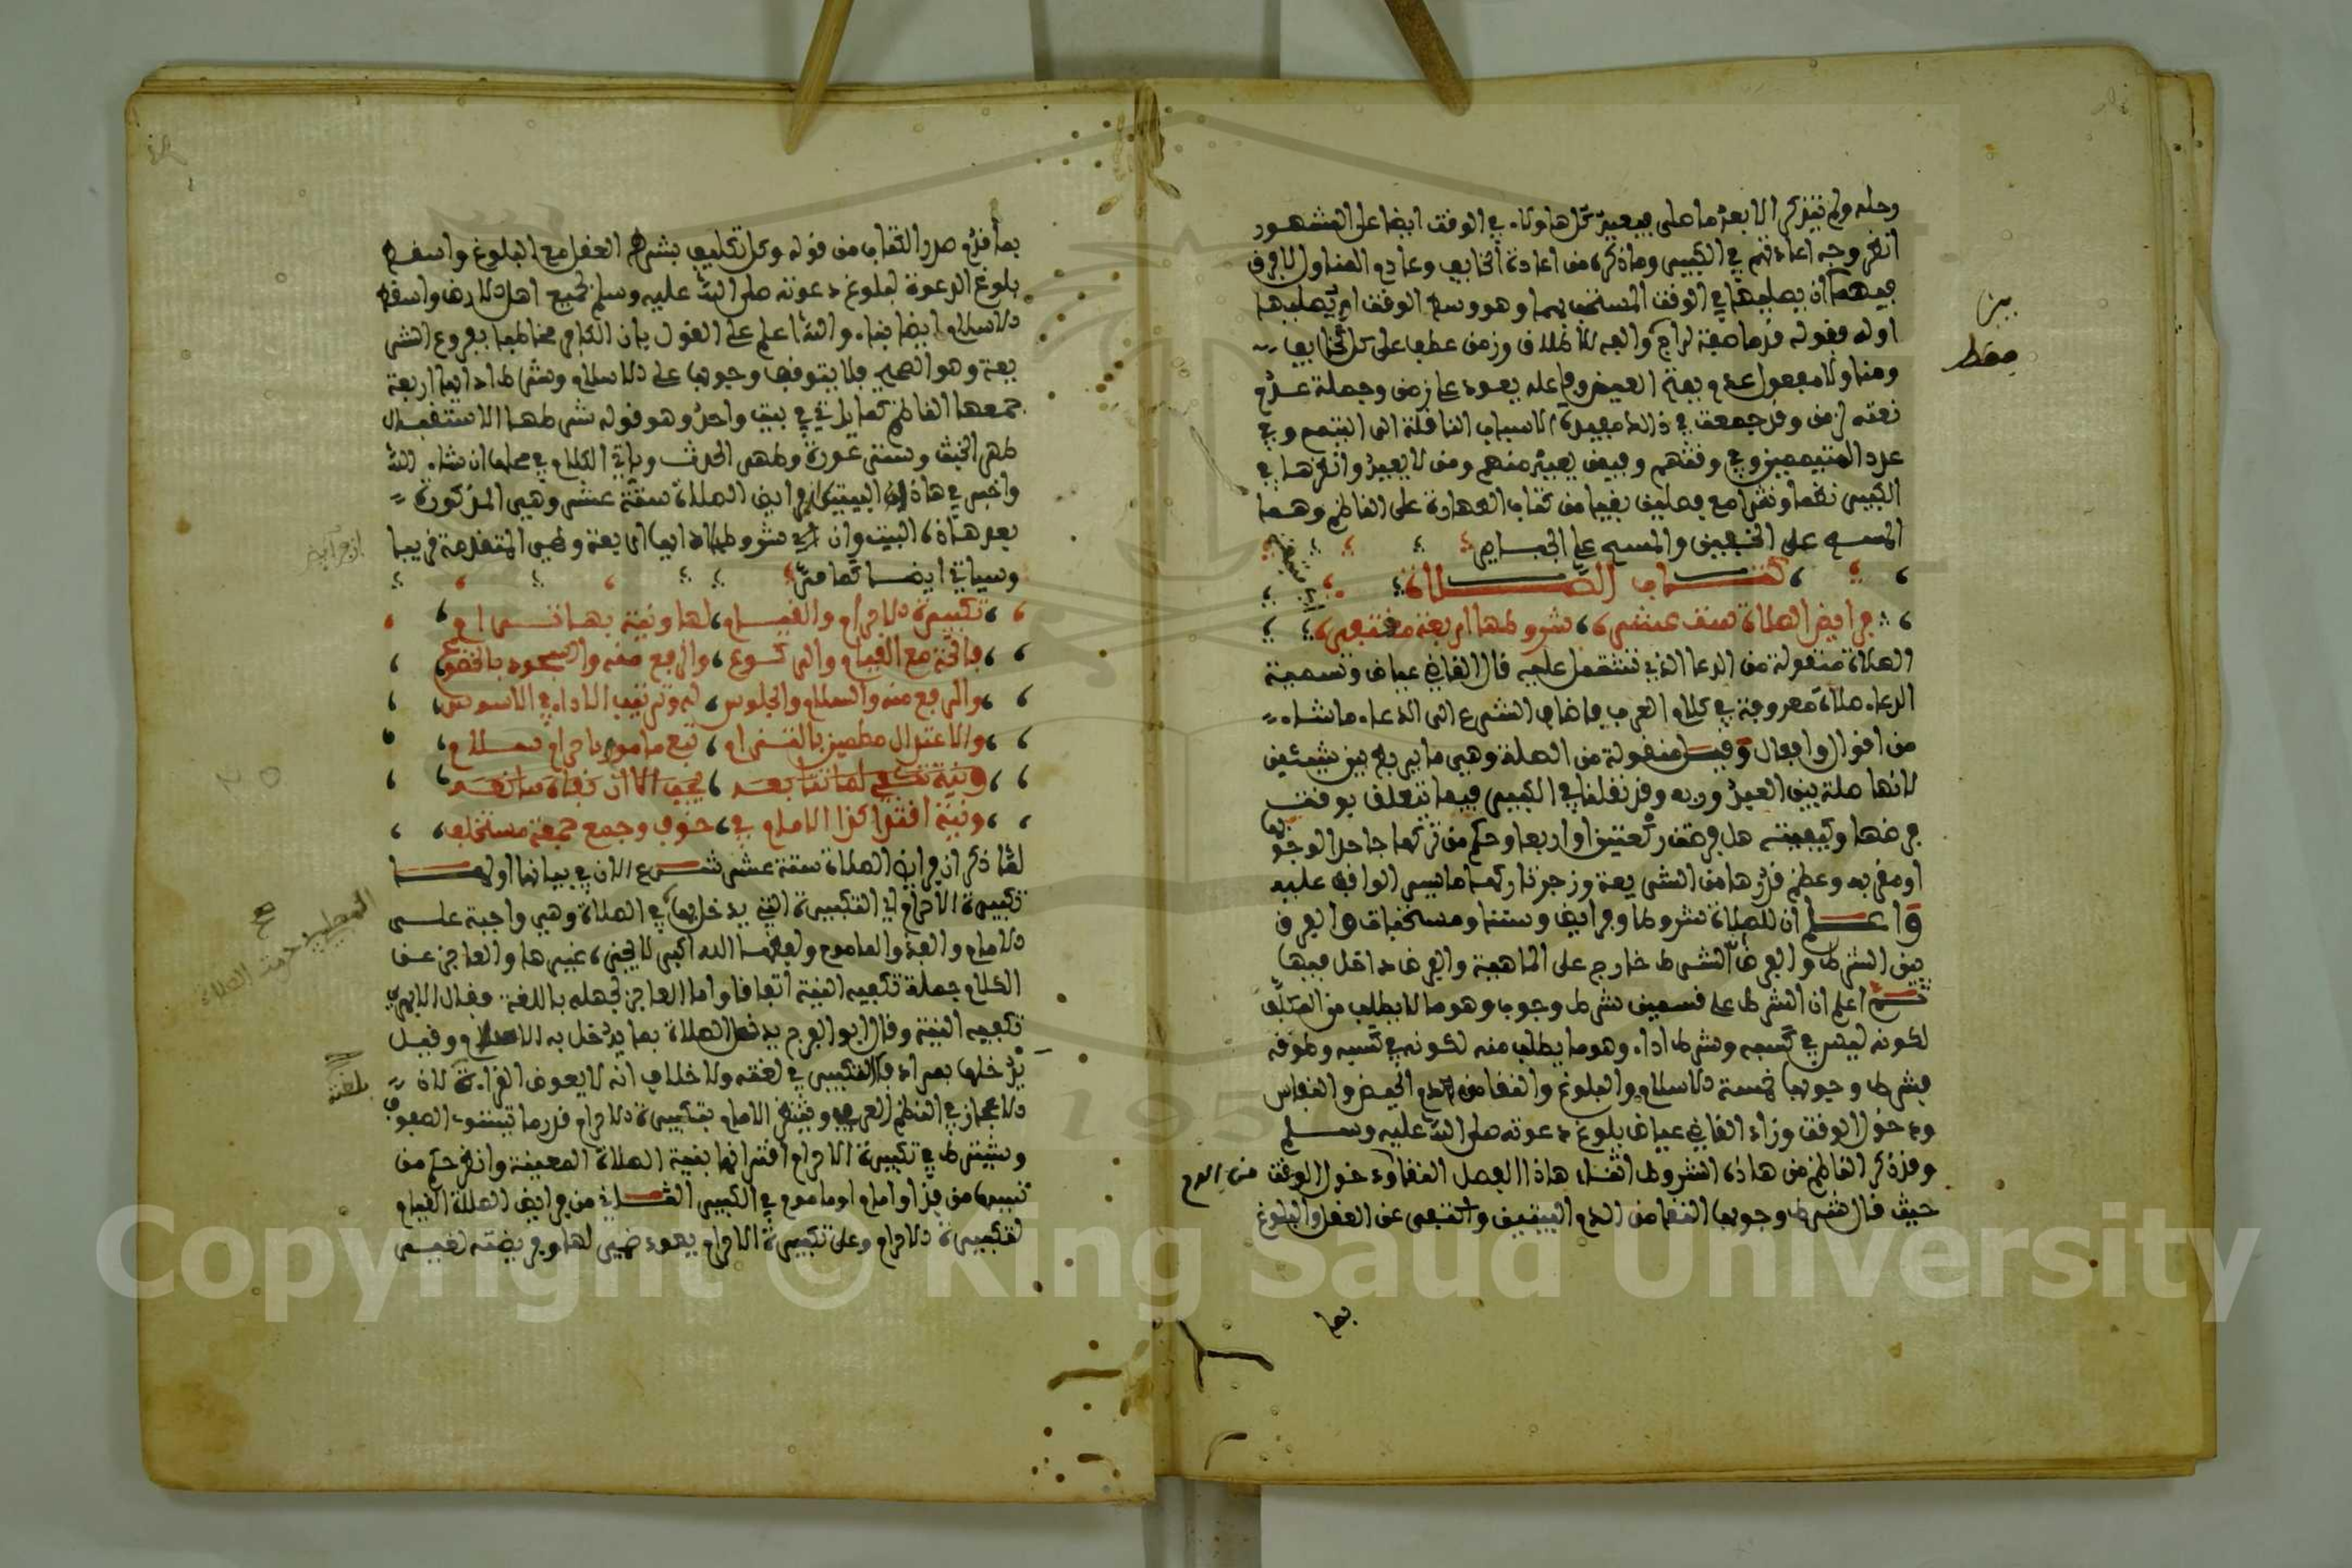 وحله ولم يتذكر الا بعد ما صلى فيعيد كل هاولاء في الوقت ايضا على المشهور
انظر وجه اعادتهم في الكبير وما ذكره من اعادة الخايف وعادم المناول لا فرق
فيهما ان يصليها في الوقت المستحب لهما وهو وسط الوقت او يصليها
اوله وقوله
ومناولا مفعول عدم بفتح العين وفاعله يعود على زمن وجملة عدم
نعته لزمن وقد جمعت في
عدد المتيممين وفي وقتهم وفيمن يعيد منهم ومن لا يعيد وانظرها في
الكبير نظما ونثرا مع فصلين بقيا من كتاب الطهارة على الناظم وهما
المسح على الخفين والمسح على الجباير
كتاب الصلاة
فرايض الصلاة ست عشره شروطها اربعة مفتقره
الصلاة منقولة من الدعا الذي تشتمل عليه قال القاضي عياض وتسمية
الدعاء صلاة معروفة في كلام العرب فاضاف الشرع الى الدعاء ما شاء
من اقوال وافعال وقيل منقولة من الصلة وهي ما يربط بين شيئين
لانها صلة بين العبد وربه وقد نقلنا في الكبير فيما يتعلق بوقت
فرضها وكيفيته هل فرضت ركعتين او اربعا وحكم من تركها جاحدا لوجوبها
او مقرا به وعظم قدرها من الشريعة وزجر تاركها ما يسر الواقف عليه
واعلم ان للصلاة شروطا وفرايض وسننا ومستحبات والفرق
بين الشرط والفرض ان الشرط خارج على الماهية والفرض داخل فيها
ثم اعلم ان الشرط على قسمين شرط وجوب وهو ما لا يطلب من المكلف
لكونه ليس في كسبه وشرط اداء وهو ما يطلب منه لكونه في كسبه وطوقه
فشرط وجوبها خمسة الاسلام والبلوغ والنقا من دم الحيض والنفاس
ودخول الوقت وزاد القاضي عياض بلوغ دعوته صلى الله عليه وسلم
وقد ذكر الناظم من هاذه الشروط اثناء هاذا الفصل النقا ودخول الوقت من الدم
حيث قال شرط وجوبها النقا من الدم البيتين واستغنى عن العقل والبلوغ
بما
بين
معط
بما قدم صدر الكتاب من قوله وكل تكليف بشرط العقل مع البلوغ واسقط
بلوغ الدعوة لبلوغ دعوته صلى الله عليه وسلم لجميع اهل الارض واسقط
الاسلام ايضا بناء والله اعلم على القول بان الكافر مخاطب بفروع الشر
يعة وهو الصحيح فلا يتوقف وجوبها على الاسلام وشرط ادايها اربعة
جمعها الناظم كما ياتي في بيت واحد وهو قوله شرطها الاستقبال
طهر الخبث وستر عورة وطهر الحدث وياتي الكلام في محلها ان شاء الله
واخبر في هاذا البيت ان فرايض الصلاة ستة عشر وهي المذكورة
بعد هاذه البيت وان شروط ادايها اربعة وهي المتقدمة قريبا
وسياتي ايضا كما مر
تكبيرة الاحرام والقيام لها ونية بها ترام
فاتحة مع القيام والركوع والرفع منه والسجود بالخضوع
والرفع منه والسلام والجلوس له وترتيب الاداء في الاسوس
والاعتدال مطمينا بالتزام تبع ماموم باحرام سلام
ونية
ونية اقتدا كذا الامام في خوف وجمع جمعة مستخلف
لما ذكر ان فرايض الصلاة ستة عشر شرع الان في بيانها اولها
تكبيرة الاحرام اي التكبيرة التي يدخل بها في الصلاة وهي واجبة على
الامام والفذ والماموم ولفظها الله اكبر لا يجزي غيرها والعاجز عن
الكلام جملة تكفيه النية اتفاقا واما العاجز لجهله باللغة فقال الابهري
تكفيه النية وقال ابو الفرج يدخل الصلاة بما يدخل به الاسلام وقيل
يدخلها بمرادف التكبير في لغته ولا خلاف انه لا يعوض القراءة لان
الاعجاز في النظم العربي وينتظر الامام بتكبيرة الاحرام قدر ما تستوي الصفوف
ويشترط في تكبيرة الاحرام اقترانها بنية الصلاة المعينة وانظر حكم من
نسيها من فذ او امام او ماموم في الكبير الثاني من فرايض الصلاة القيام
لتكبيرة الاحرام وعلى تكبيرة الاحرام يعود ضمير لها وفريضته لغير
بلغت
Copyright © King Saud University
1957